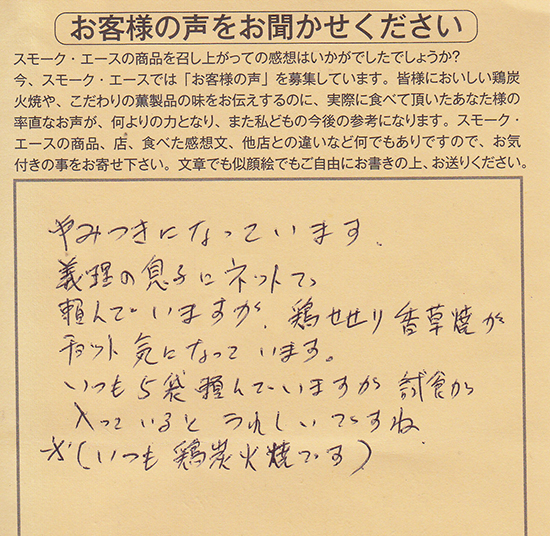 お客様の声をお聞かせください
スモーク・エースの商品を召し上がっての感想はいかがでしたでしょうか?
今、スモーク・エースでは「お客様の声」を募集しています。皆様においしい鶏炭
火焼や、こだわりの薫製品の味をお伝えするのに、実際に食べて頂いたあなた様の
率直なお声が、何よりの力となり、また私どもの今後の参考になります。スモーク・
エースの商品、店、食べた感想文、他店との違いなど何でもありですので、お気
付きの事をお寄せ下さい。文章でも似顔絵でもご自由にお書きの上、お送りください。
やみつきになっています。
義理の息子にネットで
頼んでいますが、鶏せせり香草焼が
チョット気になって います。
いつも5袋頼んでいますが 試食が
入っていると うれしいですね
(いつも鶏炭火焼です)